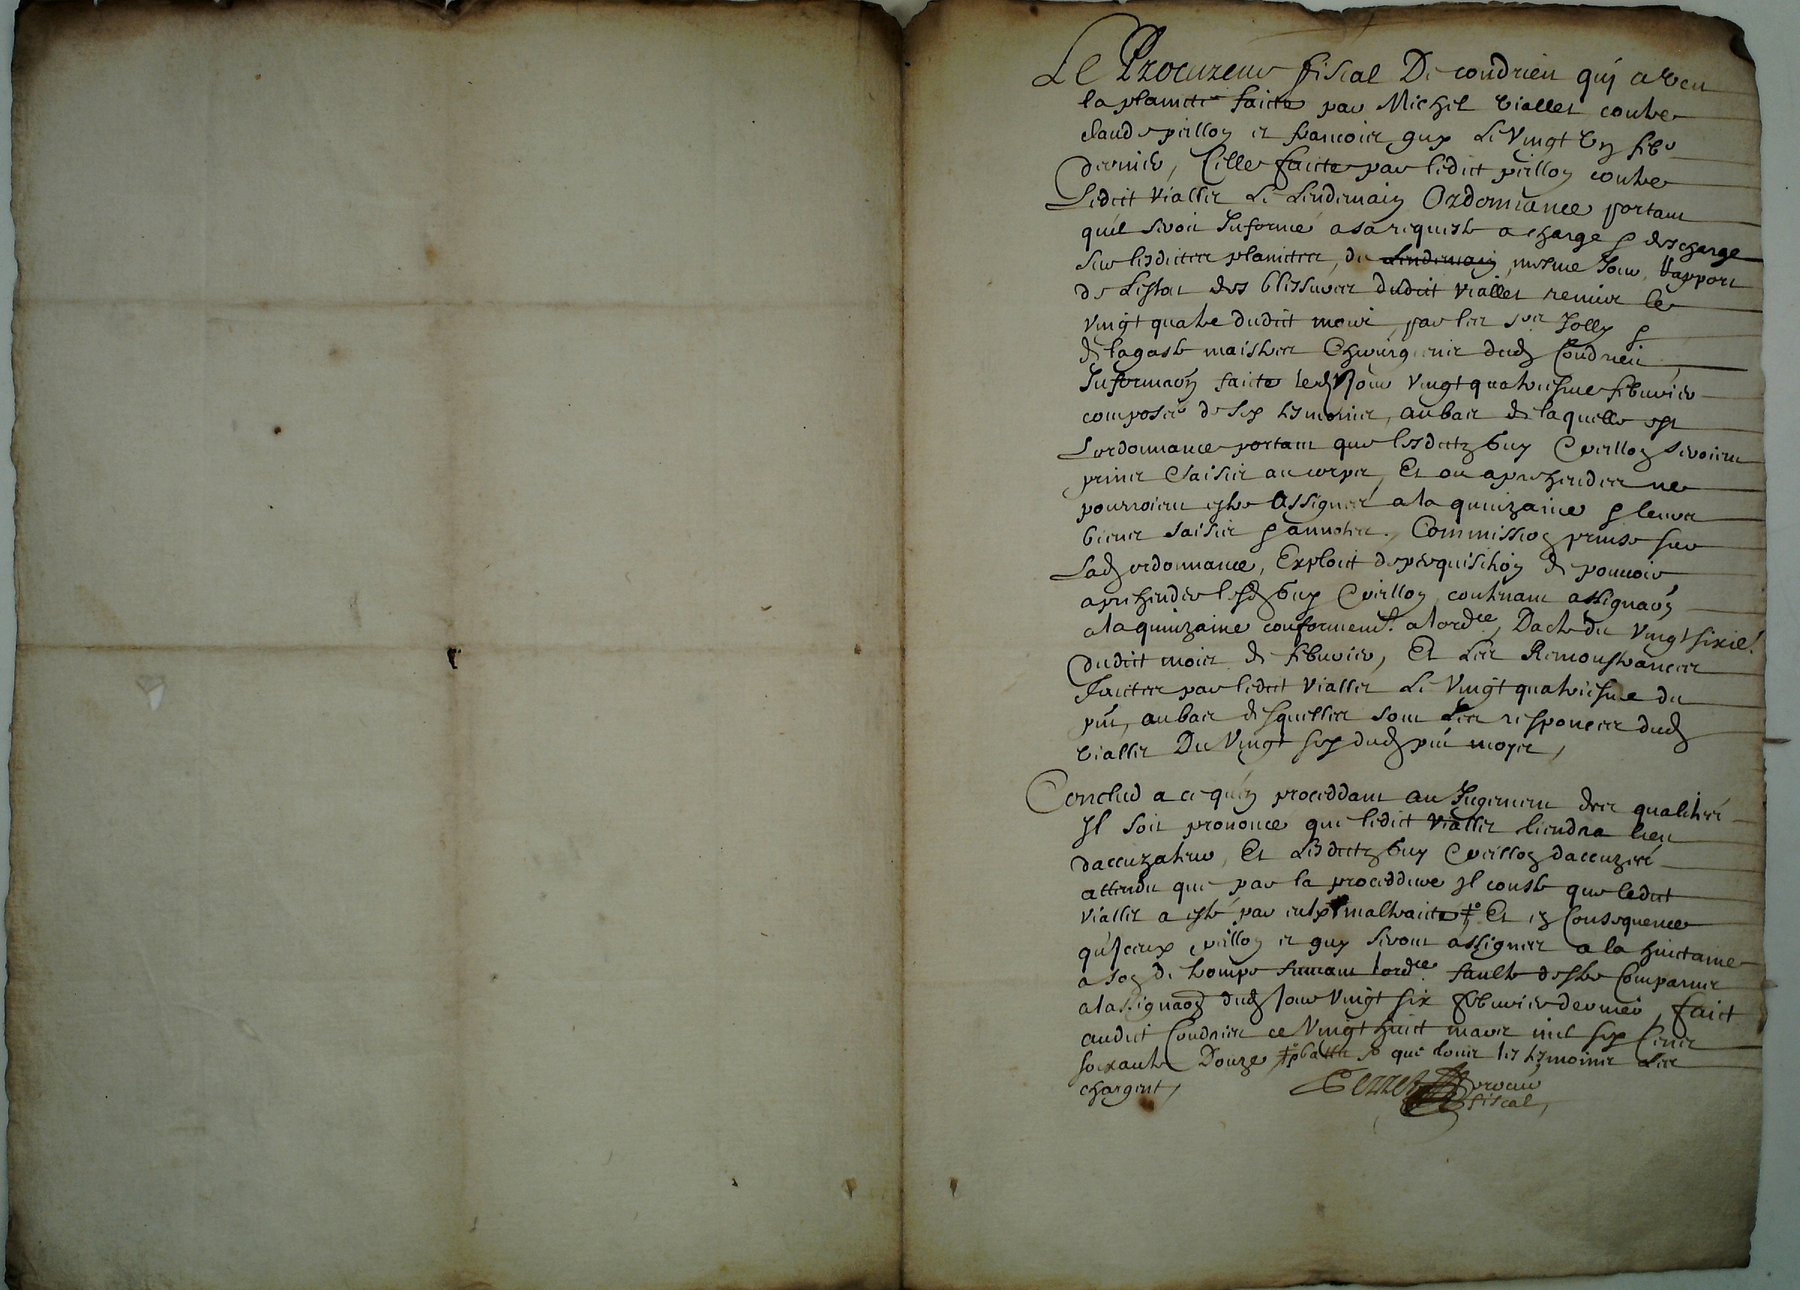 Le Procureur fiscal De condrieu qui a veu
la plaincte faicte par Michel viallet contre
claude peillon et francois guy Le Vingt un feb.
dernier, Celle faicte par ledict peillon contre
Ledict viallet Le Lendemain Ordonnance portant
quil seroit Informé a sa requiste a charge & descharge
sur lesdictes plainctes, du mesme Jour, Rapport
de Lestat des blessures dudict viallet remis le
vingt quatre dudict mois, par les srs Jolly &
de lagaste maistres Chirurgiens dud Condrieu
Informaon faicte led Jour vingt quatriesme febvrier
composée de sep tesmoins, au bas de laquelle est
Lordonnance portant que lesdictz Guy & peillon seroient
prins & saisis au corps, Et ou aprehender ne
pourroient estre Assignés a la quinzaine & leurs
biens saisis & annotes. Commission prinse sur
Lad ordonnance, Exploict de perquisition de pouvoir
aprehender lesd Guy & peillon contenant assignaon
a la quinzaine conformemt. a lordce, Dacte du vingt sixie.
dudict mois de febvrier, Et Les Remonstrances
Faictes par ledict viallet Le Vingt quatriesme du
pnt, au bas desquelles sont Les responces dud
viallet Du Vingt sep dud pnt moys,
Conclud a ce quen proceddant au Jugement des qualités
Jl soit prononcé que ledict viallet tiendra lieu
daccuzateur, Et Lesdictz Guy & peillon daccuzés
attendu que par la procedure Jl conste que ledict
viallet a esté par eulx maltraicté ‡ Et en Consequence
qu'Jceux peillon et guy seront assignes a la huictaine
a son de trompe suivant lordce faulte destre Comparus
a lassignaon dud Jour vingt six febvrier dernier, faict
audict Condrieu ce Vingt huict mars mil six Cens
soixante Douze, ‡ & battu & que tous les tesmoins les
chargent,
procur
fiscal,